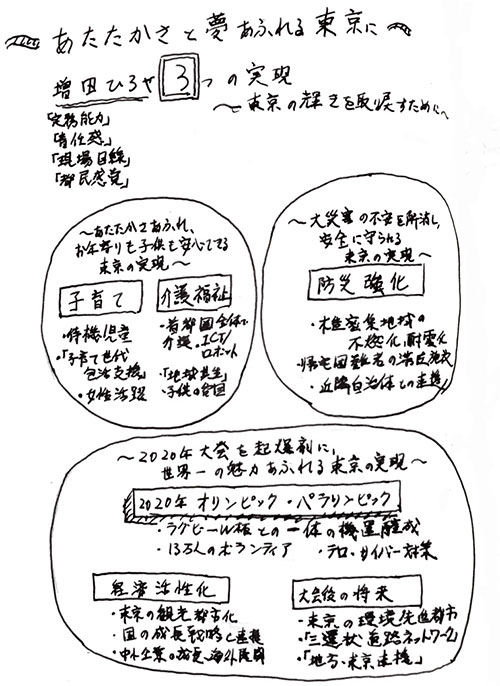 あたたかさと夢あふれる東京に
増田ひろや 3つの実現
～東京の輝きを取戻すために～
「実務能力」
「責任感」
「現場目線」
「都民感覚」
～あたたかさあふれ、
お年寄りも子供も安心できる
東京の実現～
子育て
・待機児童
・「子育て世代
包括支援」
・女性活躍
介護福祉
・首都圏全体で
介護。ICT/
ロボット
・「地域共生」
・子供の貧困
～大災害の不安を解消し、
安全に守られる
東京の実現～
防災強化
・木造密集地域の
不燃化、耐震化
・帰宅困難者の滞在施設
・近隣自治体との連携
～2020年大会を起爆剤に、
世界一の魅力あふれる東京の実現～
2020年 オリンピック・パラリンピック
・ラグビーW杯との一体の機運醸成
・13万人のボランティア ・テロ・サイバー対策
経済活性化
・東京の観光都市化
・国の成長戦略と連携
・中小企業の
海外展開
大会後の将来
・東京の環境先進都市
・「三環状道路ネットワーク」
・「地方・東京連携」